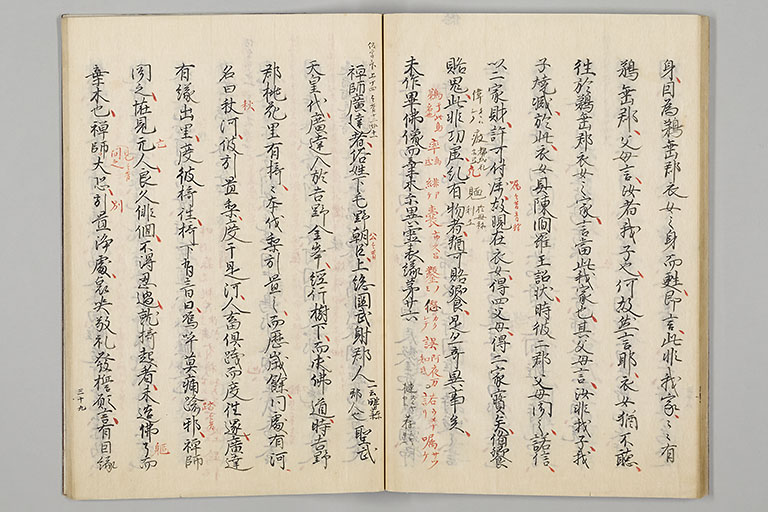 身因為鵜垂郡衣女之身而甦即言此非我家〻〻有
鵜垂郡父母言汝者我子也何故然言耶衣女猶不聴
往於鵜垂郡衣女之家言當此我家也其父母言汝非我子我
子焼滅於此衣女具陳閻羅王詔状時彼二郡父母聞之諾信
以二家財許可付属故現在衣女得四父母得二家寶矣備饗
賂鬼此非功虚凡有物者猶可賂饗是亦奇異事矣
未作畢佛像而棄木示異霊表縁第廿六
禅師廣達者俗姓下毛野朝臣上総國武射郡人一云畔蒜郡人也聖武
天皇代廣達入於吉野金峯經行樹下而求佛道時吉野
郡桃花里有椅〻本伐梨引置之而歴歳餘同處有河
名曰秋河彼引置梨度于是河人畜倶践而度往還廣達
有縁出里度彼椅往椅下有音曰嗚呼莫痛踰耶禅師
聞之怪見无人良久俳徊不得忍過就椅起看未造佛了而
棄木也禅師大恐引置浄處哀哭敬礼發誓願言有因縁
三十九